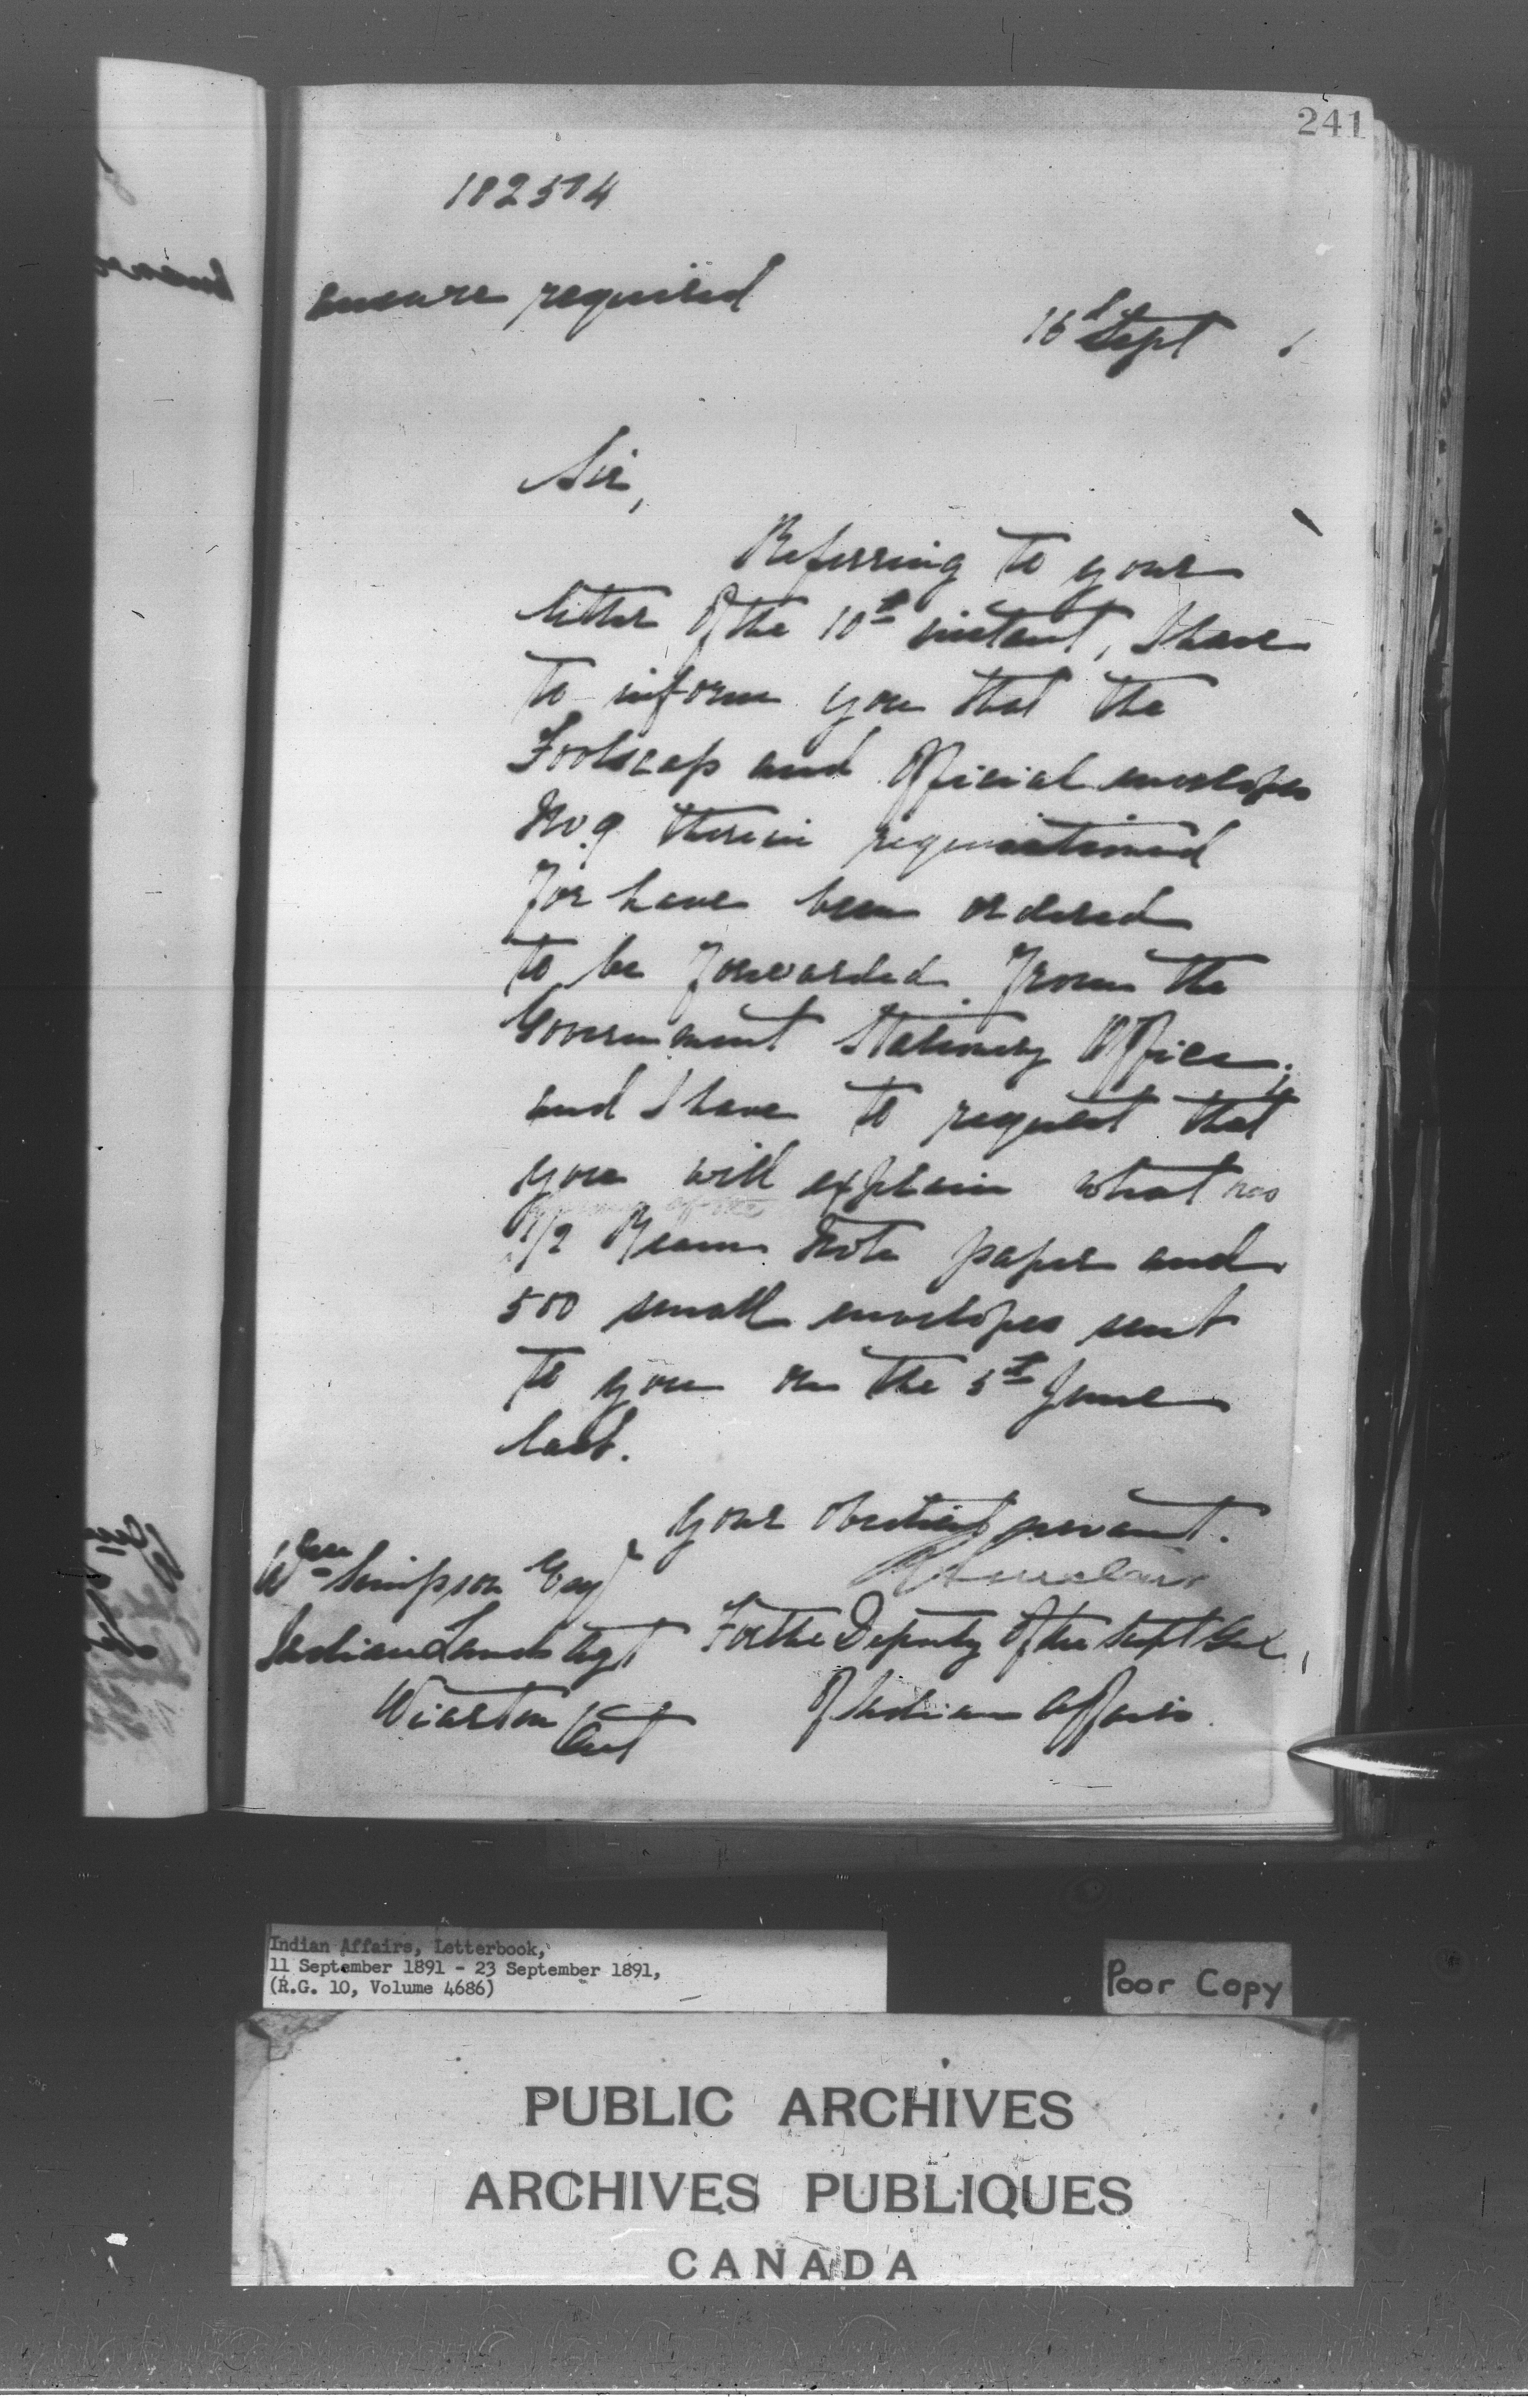 241
182504
answer required
16th Sept 1
Sir,
Referring to your
letter of the 10th instant, I have
to inform you that the
Foolscap and Official envelopes
No. 9 therein requisitioned
for have been ordered
to be forwarded from the
Government Stationery Office;
and I have to request that
you will explain what was
1/2 Ream Note paper and
500 small envelopes sent
to you on the 5th June
last.
Your obedient servant.
Wm Simpson Esq
Indian Lands Agt
For the Deputy of the Supt Genl,
Wiarton Ont
of Indian Affairs.
Indian Affairs, Letterbook,
11 September 1891 - 23 September 1891,
(R.G. 10, Volume 4686)
Poor Copy
PUBLIC ARCHIVES
ARCHIVES PUBLIQUES
CANADA